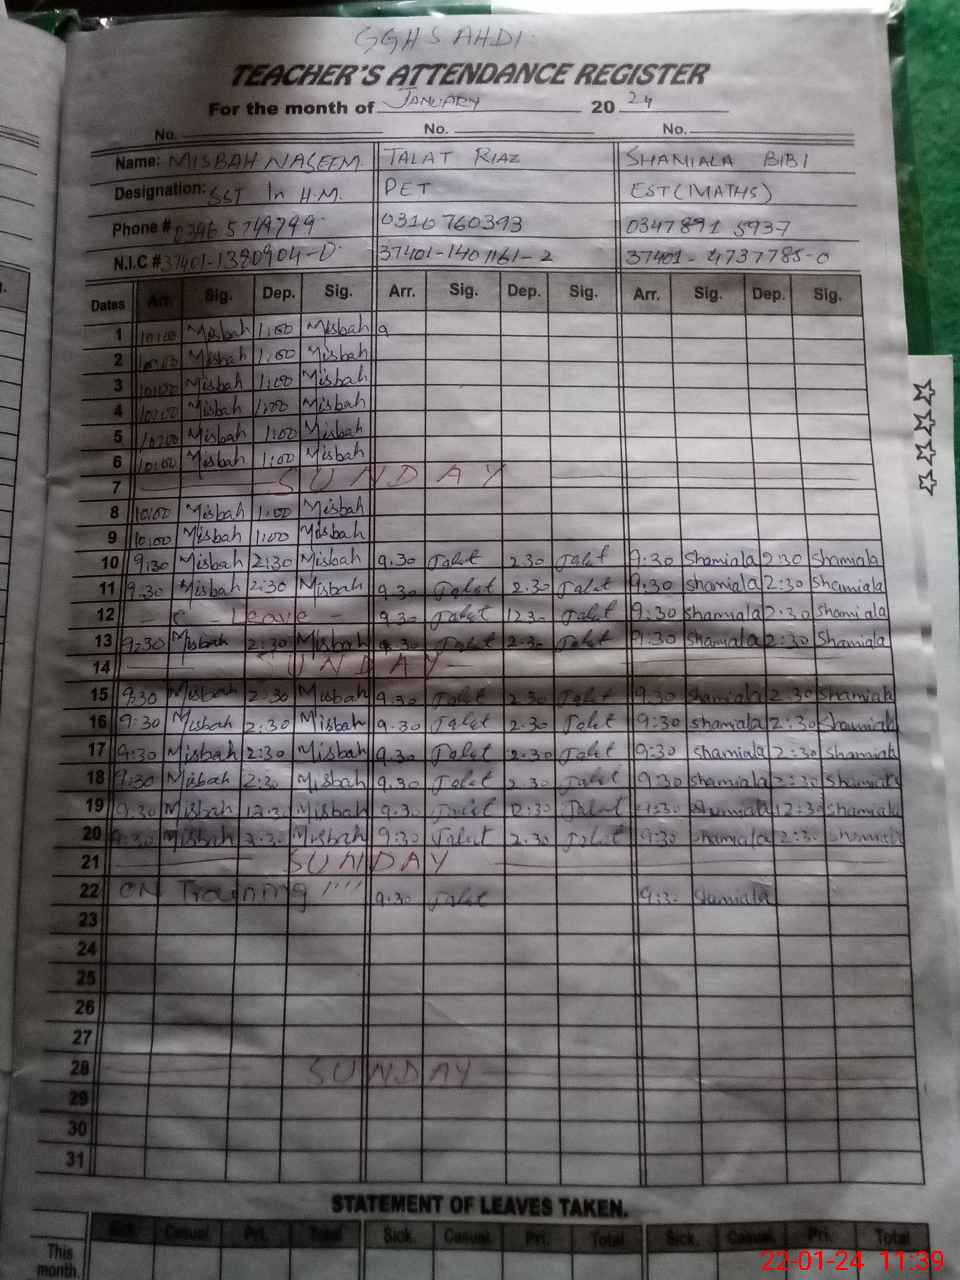 GGHS AHDI
TEACHER'S ATTENDANCE REGISTER
For the month of JANUARY 20 24
No. No. No.
Name: MISBAH NASEEM TALAT RIAZ SHAMIALA BIBI
Designation: SST In H.M. PET EST (MATHS)
Phone # 0346 5749799 0310 760393 0347 891 5937
N.I.C # 37401-1380904-0 37401-1401161-2 37401-4737785-0
Dates Arr. Sig. Dep. Sig. Arr. Sig. Dep. Sig. Arr. Sig. Dep. Sig.
1 10:00 Misbah 1:00 Misbah 9
2 10:00 Misbah 1:00 Misbah
3 10:00 Misbah 1:00 Misbah
4 10:00 Misbah 1:00 Misbah
5 10:00 Misbah 1:00 Misbah
6 10:00 Misbah 1:00 Misbah
7 SUNDAY
8 10:00 Misbah 1:00 Misbah
9 10:00 Misbah 1:00 Misbah
10 9:30 Misbah 2:30 Misbah 9.30 Talet 2.30 Talet 9:30 Shamiala 2:30 Shamiala
11 9:30 Misbah 2:30 Misbah 9.30 Talet 2.30 Talet 9:30 Shamiala 2:30 Shamiala
12 - C - Leave - 9.30 Talet 12.30 Talet 9:30 Shamiala 2:30 Shamiala
13 9:30 Misbah 2:30 Misbah 9.30 Talet 2.30 Talet 9:30 Shamiala 2:30 Shamiala
14 SUNDAY
15 9:30 Misbah 2:30 Misbah 9.30 Talet 2.30 Talet 9:30 Shamiala 2:30 Shamiala
16 9:30 Misbah 2:30 Misbah 9.30 Talet 2.30 Talet 9:30 Shamiala 2:30 Shamiala
17 9:30 Misbah 2:30 Misbah 9.30 Talet 2.30 Talet 9:30 Shamiala 2:30 Shamiala
18 9:30 Misbah 2:30 Misbah 9.30 Talet 2.30 Talet 9:30 Shamiala 2:30 Shamiala
19 9:30 Misbah 12:30 Misbah 9.30 Talet 12:30 Talet 9:30 Shamiala 12:30 Shamiala
20 9:30 Misbah 2:30 Misbah 9:30 Talet 2.30 Talet 9:30 Shamiala 2:30 Shamiala
21 SUNDAY
22 ON Training '''' 9.30 Talet 9:30 Shamiala
23
24
25
26
27
28 SUNDAY
29
30
31
STATEMENT OF LEAVES TAKEN.
Sick. Casual Pri. Total Sick. Casual Pri. Total Sick. Casual Pri. Total
This month.
22-01-24 11:39